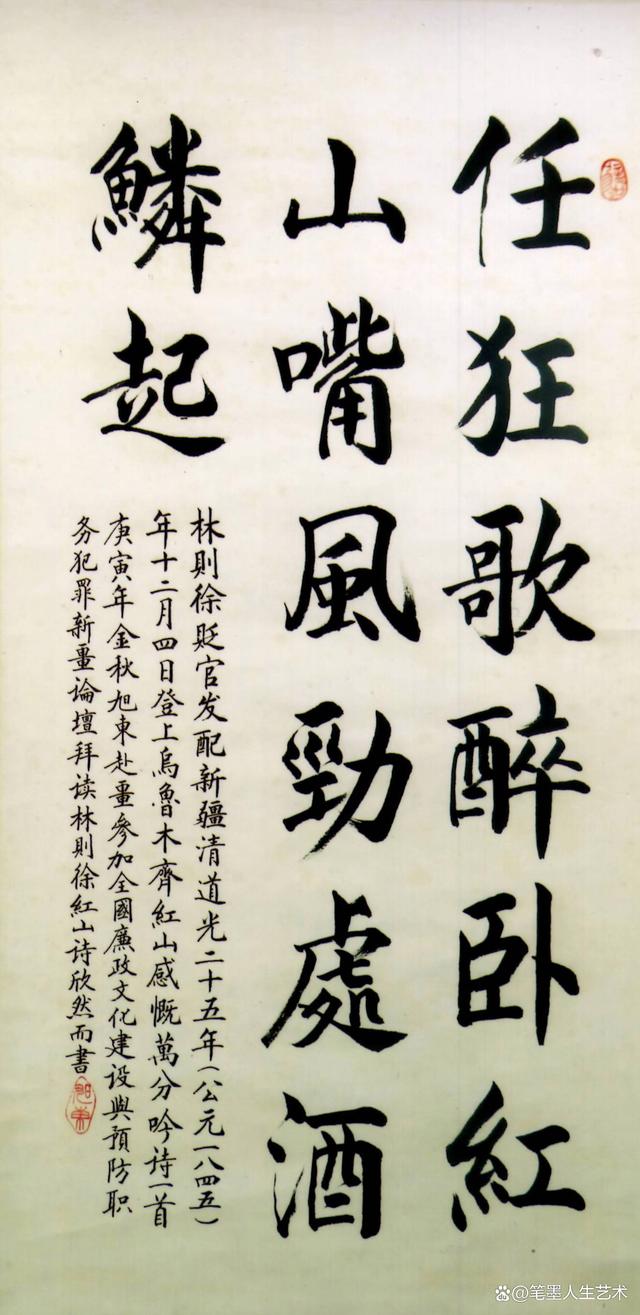 任狂歌醉卧紅
山嘴風勁處酒
鱗起
林則徐貶官发配新疆清道光二十五年(公元一八四五)
年十二月四日登上烏魯木齊紅山感慨萬分吟诗一首
庚寅年金秋旭東赴畺參加全國廉政文化建设與預防职
务犯罪新畺论壇拜读林則徐紅山诗欣然而書
旭東
@笔墨人生艺术